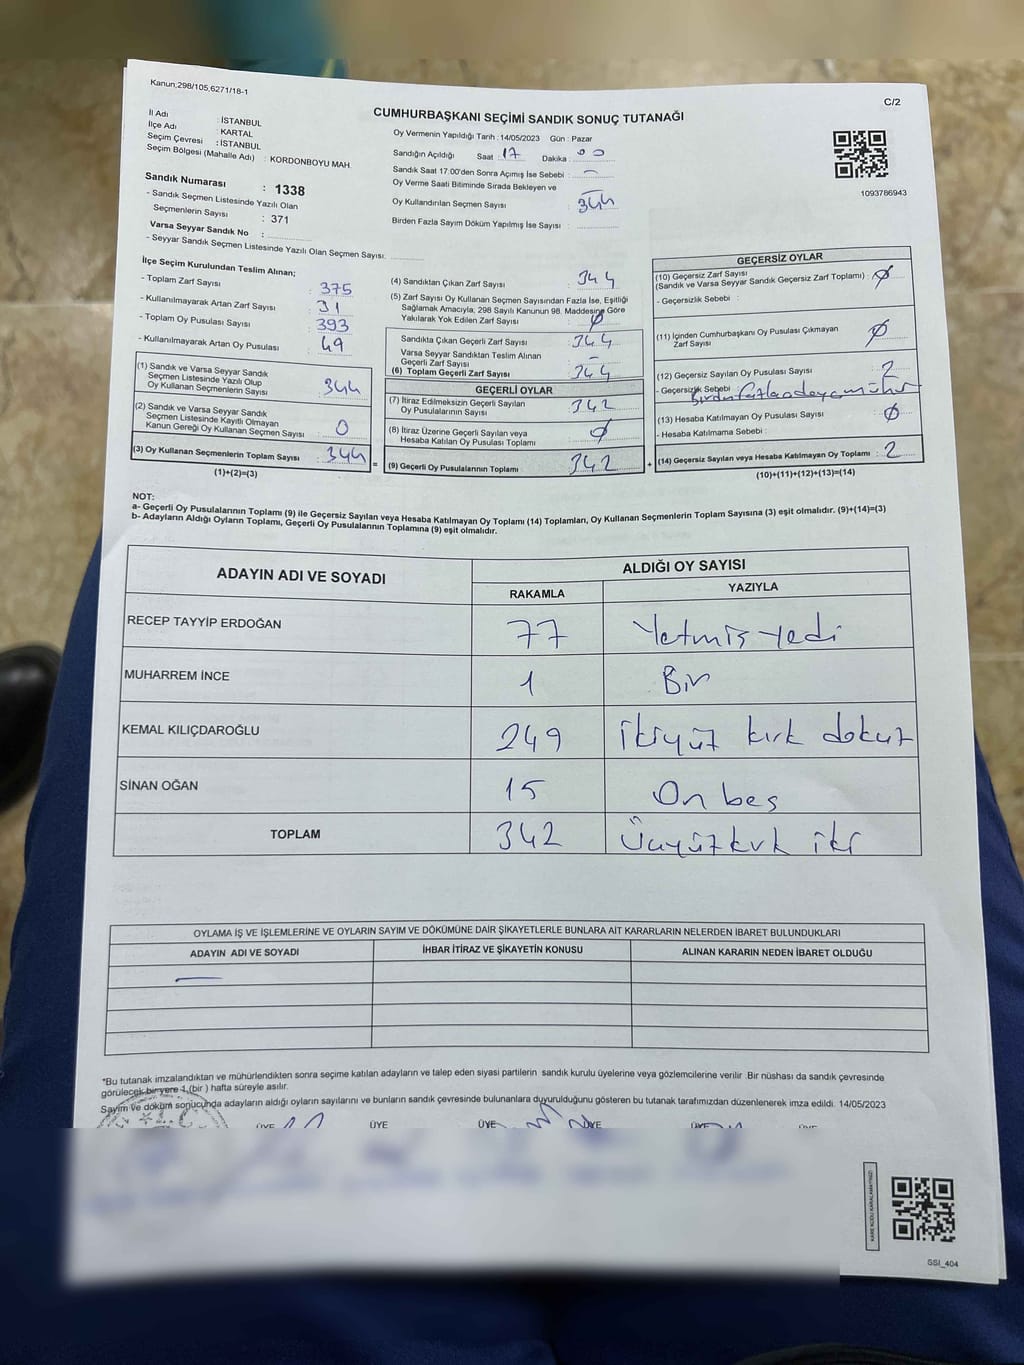 Kanun;298/105,6271/18-1
C/2
CUMHURBAŞKANI SEÇİMİ SANDIK SONUÇ TUTANAĞI
İl Adı : İSTANBUL
İlçe Adı : KARTAL
Seçim Çevresi : İSTANBUL
Seçim Bölgesi (Mahalle Adı) : KORDONBOYU MAH.
Sandık Numarası : 1338
- Sandık Seçmen Listesinde Yazılı Olan
Seçmenlerin Sayısı : 371
Varsa Seyyar Sandık No :
- Seyyar Sandık Seçmen Listesinde Yazılı Olan Seçmen Sayısı:
Oy Vermenin Yapıldığı Tarih : 14/05/2023 Gün : Pazar
Sandığın Açıldığı Saat : 17 Dakika : 00
Sandık Saat 17:00'den Sonra Açımış İse Sebebi : -
Oy Verme Saati Bitiminde Sırada Bekleyen ve
Oy Kullandırılan Seçmen Sayısı : 344
Birden Fazla Sayım Döküm Yapılmış İse Sayısı :
1093786943
İlçe Seçim Kurulundan Teslim Alınan;
- Toplam Zarf Sayısı : 375
- Kullanılmayarak Artan Zarf Sayısı : 31
- Toplam Oy Pusulası Sayısı : 393
- Kullanılmayarak Artan Oy Pusulası : 49
(1) Sandık ve Varsa Seyyar Sandık
Seçmen Listesinde Yazılı Olup
Oy Kullanan Seçmenlerin Sayısı : 344
(2) Sandık ve Varsa Seyyar Sandık
Seçmen Listesinde Kayıtlı Olmayan
Kanun Gereği Oy Kullanan Seçmen Sayısı : 0
(3) Oy Kullanan Seçmenlerin Toplam Sayısı : 344
(1)+(2)=(3)
(4) Sandıktan Çıkan Zarf Sayısı : 344
(5) Zarf Sayısı Oy Kullanan Seçmen Sayısından Fazla İse, Eşitliği
Sağlamak Amacıyla; 298 Sayılı Kanunun 98. Maddesine Göre
Yakılarak Yok Edilen Zarf Sayısı : Ø
Sandıkta Çıkan Geçerli Zarf Sayısı : 344
Varsa Seyyar Sandıktan Teslim Alınan
Geçerli Zarf Sayısı : -
(6) Toplam Geçerli Zarf Sayısı : 344
GEÇERLİ OYLAR
(7) İtiraz Edilmeksizin Geçerli Sayılan
Oy Pusulalarının Sayısı : 342
(8) İtiraz Üzerine Geçerli Sayılan veya
Hesaba Katılan Oy Pusulası Toplamı : Ø
= (9) Geçerli Oy Pusulalarının Toplamı : 342 +
GEÇERSİZ OYLAR
(10) Geçersiz Zarf Sayısı
(Sandık ve Varsa Seyyar Sandık Geçersiz Zarf Toplamı) : Ø
- Geçersizlik Sebebi :
(11) İçinden Cumhurbaşkanı Oy Pusulası Çıkmayan
Zarf Sayısı : Ø
(12) Geçersiz Sayılan Oy Pusulası Sayısı : 2
- Geçersizlik Sebebi : birden fazla adaya mühür
(13) Hesaba Katılmayan Oy Pusulası Sayısı : Ø
- Hesaba Katılmama Sebebi :
(14) Geçersiz Sayılan veya Hesaba Katılmayan Oy Toplamı : 2
(10)+(11)+(12)+(13)=(14)
NOT:
a- Geçerli Oy Pusulalarının Toplamı (9) ile Geçersiz Sayılan veya Hesaba Katılmayan Oy Toplamı (14) Toplamları, Oy Kullanan Seçmenlerin Toplam Sayısına (3) eşit olmalıdır. (9)+(14)=(3)
b- Adayların Aldığı Oyların Toplamı, Geçerli Oy Pusulalarının Toplamına (9) eşit olmalıdır.
ADAYIN ADI VE SOYADI
ALDIĞI OY SAYISI
RAKAMLA YAZIYLA
RECEP TAYYİP ERDOĞAN 77 Yetmiş yedi
MUHARREM İNCE 1 Bir
KEMAL KILIÇDAROĞLU 249 ikiyüz kırk dokuz
SİNAN OĞAN 15 On beş
TOPLAM 342 Üçyüz kırk iki
OYLAMA İŞ VE İŞLEMLERİNE VE OYLARIN SAYIM VE DÖKÜMÜNE DAİR ŞİKAYETLERLE BUNLARA AİT KARARLARIN NELERDEN İBARET BULUNDUKLARI
ADAYIN ADI VE SOYADI İHBAR İTİRAZ VE ŞİKAYETİN KONUSU ALINAN KARARIN NEDEN İBARET OLDUĞU
*Bu tutanak imzalandıktan ve mühürlendikten sonra seçime katılan adayların ve talep eden siyasi partilerin sandık kurulu üyelerine veya gözlemcilerine verilir .Bir nüshası da sandık çevresinde
görülecek bir yere 1 (bir ) hafta süreyle asılır.
Sayım ve döküm sonucunda adayların aldığı oyların sayılarını ve bunların sandık çevresinde bulunanlara duyurulduğunu gösteren bu tutanak tarafımızdan düzenlenerek imza edildi. 14/05/2023
ÜYE ÜYE ÜYE ÜYE ÜYE ÜYE
SSI_404